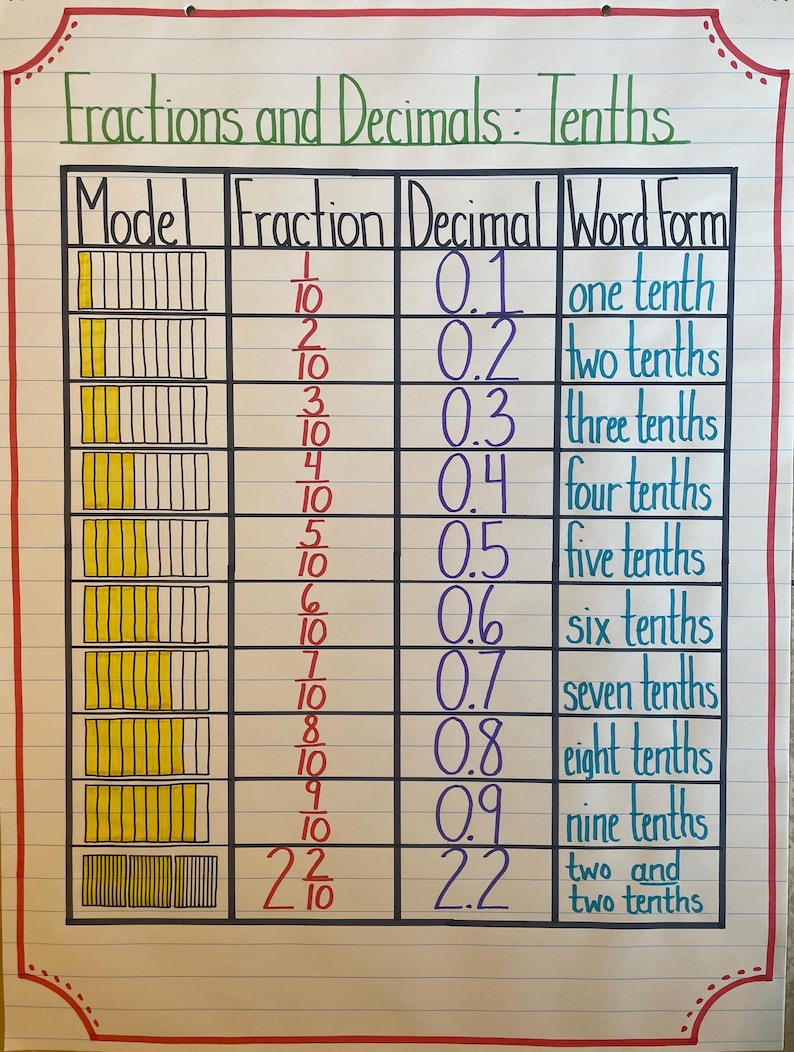 Fractions and Decimals: Tenths
Model Fraction Decimal Word Form
1/10 0.1 one tenth
2/10 0.2 two tenths
3/10 0.3 three tenths
4/10 0.4 four tenths
5/10 0.5 five tenths
6/10 0.6 six tenths
7/10 0.7 seven tenths
8/10 0.8 eight tenths
9/10 0.9 nine tenths
2 2/10 2.2 two and
two tenths